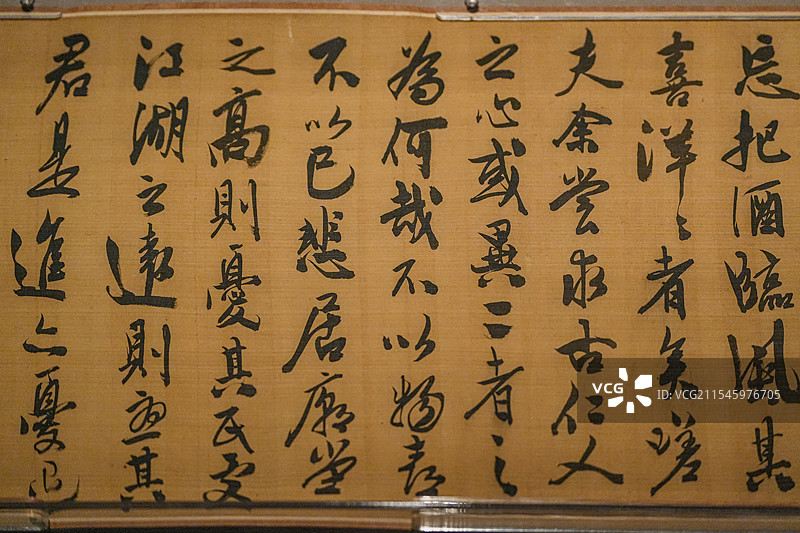 忘把酒臨風其
喜洋〻者矣嗟
夫余嘗求古仁人
之心或異二者之
為何哉不以物喜
不以己悲居廟堂
之高則憂其民處
江湖之遠則憂其
君是進亦憂
VCG
ID:VCG211545976705